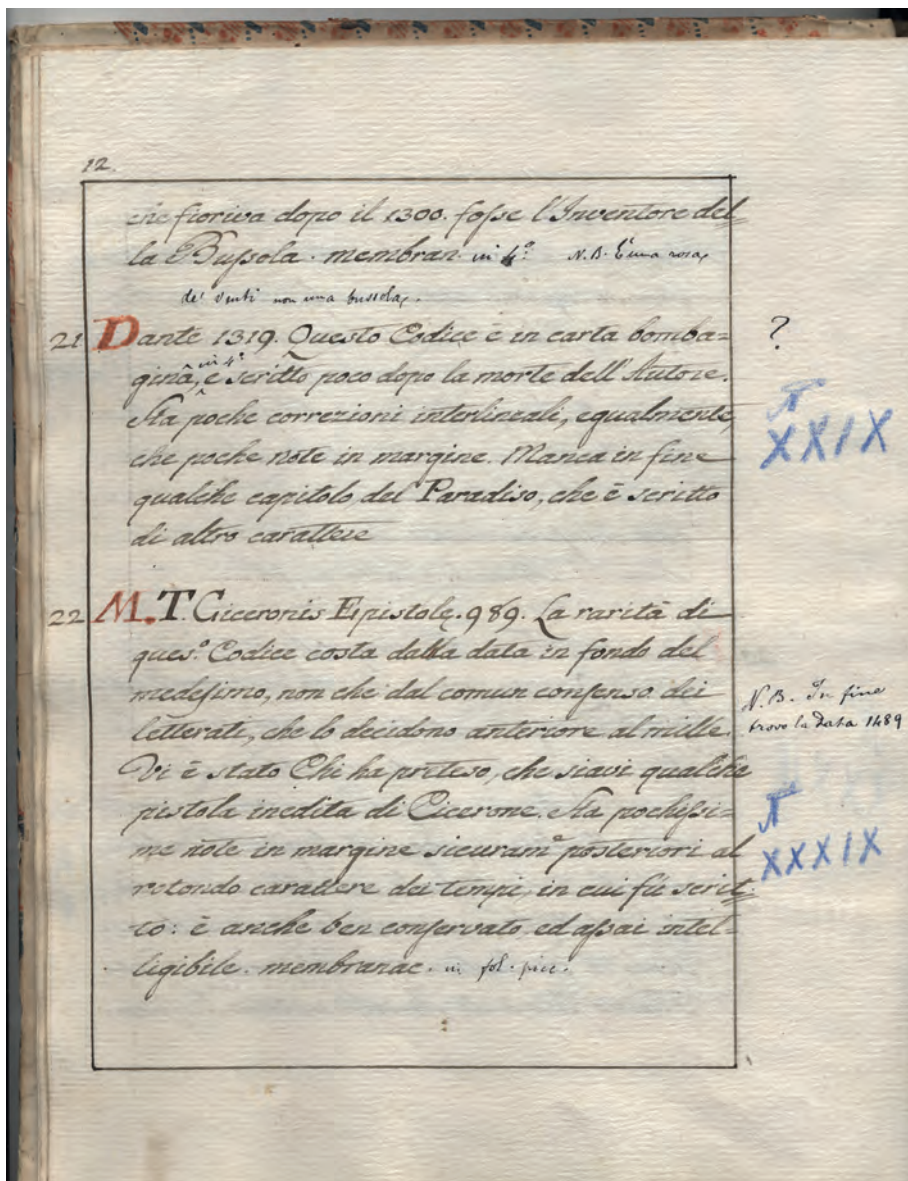 12.
che fioriva dopo il 1300. fosse l'Inventore del=
la Bussola. membran. in 4.º N.B. È una rosa
de' venti non una bussola.
21 Dante 1319. Questo Codice è in carta bomba= ?
gina, in 4º è scritto poco dopo la morte dell'Autore.
Ha poche correzioni interlineali, egualmente, N
che poche note in margine. Manca in fine XXIX
qualche capitolo del Paradiso, che è scritto
di altro carattere
22 M.T. Ciceronis Epistolę. 989. La rarità di
ques.º Codice costa dalla data in fondo del
medesimo, non che dal comun consenso dei N.B. In fine
letterati, che lo decidono anteriore al mille. trovo la data 1489
Vi è stato Chi ha preteso, che siavi qualche
pistola inedita di Cicerone. Ha pochissi= N
me note in margine sicuram.e posteriori al XXXIX
rotondo carattere dei tempi, in cui fù scrit=
to: è anche ben conservato, ed assai intel=
ligibile. membranac. in fol. picc.